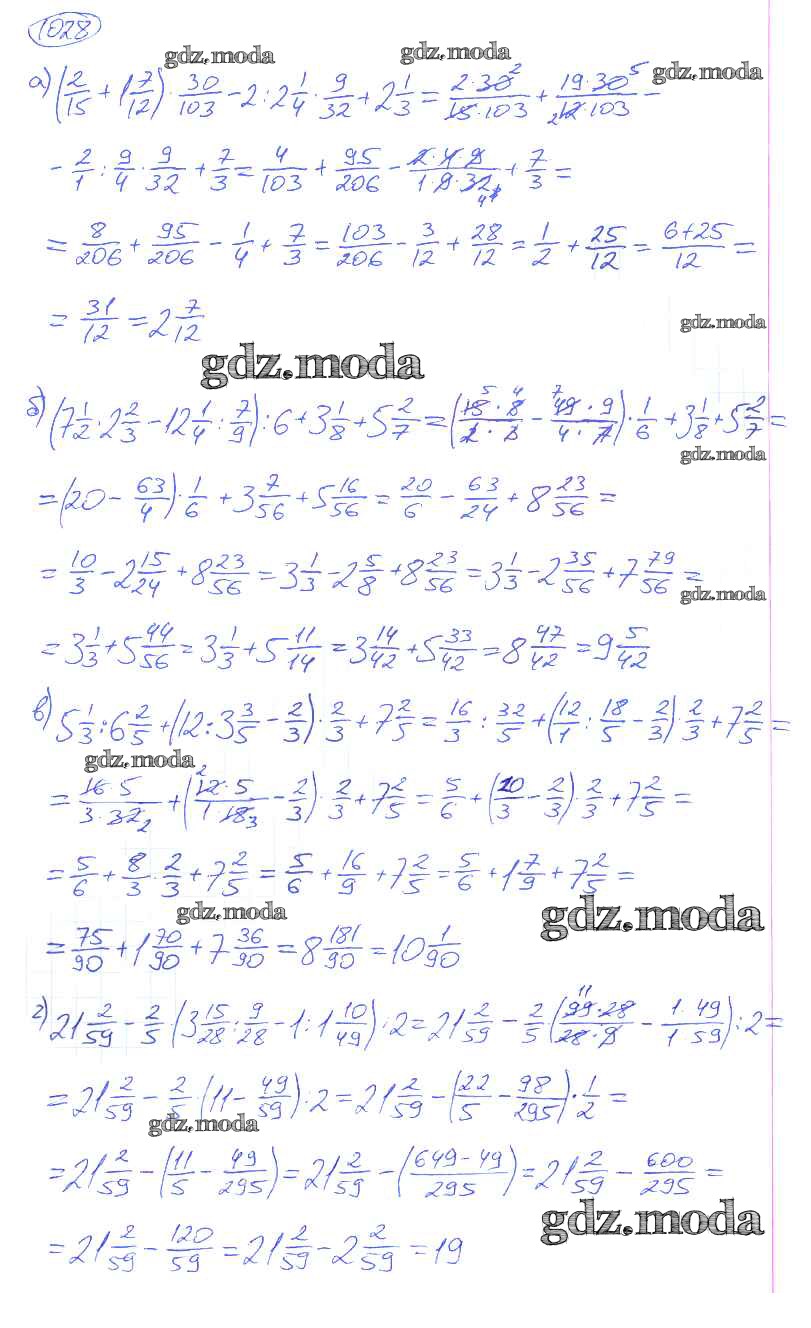 1028
gdz.moda gdz.moda gdz.moda
а) (2/15 + 1 7/12) · 30/103 − 2 : 2 1/4 · 9/32 + 2 1/3 = 2·30²/15·103 + 19·30⁵/₂12·103 −
− 2/1 : 9/4 · 9/32 + 7/3 = 4/103 + 95/206 − 2·4·9/1·9·32₄ + 7/3 =
= 8/206 + 95/206 − 1/4 + 7/3 = 103/206 − 3/12 + 28/12 = 1/2 + 25/12 = 6+25/12 =
= 31/12 = 2 7/12
gdz.moda
gdz.moda
б) (7 1/2 · 2 2/3 − 12 1/4 : 7/9) : 6 + 3 1/8 + 5 2/7 = (⁵15·8⁴/2·3 − ⁷49·9/4·7) · 1/6 + 3 1/8 + 5 2/7 =
gdz.moda
= (20 − 63/4) · 1/6 + 3 7/56 + 5 16/56 = 20/6 − 63/24 + 8 23/56 =
= 10/3 − 2 15/24 + 8 23/56 = 3 1/3 − 2 5/8 + 8 23/56 = 3 1/3 − 2 35/56 + 7 79/56 =
gdz.moda
= 3 1/3 + 5 44/56 = 3 1/3 + 5 11/14 = 3 14/42 + 5 33/42 = 8 47/42 = 9 5/42
в) 5 1/3 : 6 2/5 + (12 : 3 3/5 − 2/3) · 2/3 + 7 2/5 = 16/3 : 32/5 + (12/1 : 18/5 − 2/3) · 2/3 + 7 2/5 =
gdz.moda
= 16·5/3·32₂ + (²12·5/1·18₃ − 2/3) · 2/3 + 7 2/5 = 5/6 + (10/3 − 2/3) · 2/3 + 7 2/5 =
= 5/6 + 8/3 · 2/3 + 7 2/5 = 5/6 + 16/9 + 7 2/5 = 5/6 + 1 7/9 + 7 2/5 =
gdz.moda gdz.moda
= 75/90 + 1 70/90 + 7 36/90 = 8 181/90 = 10 1/90
г) 21 2/59 − 2/5 · (3 15/28 : 9/28 − 1 : 1 10/49) : 2 = 21 2/59 − 2/5 (¹¹99·28/28·9 − 1·49/1·59) : 2 =
= 21 2/59 − 2/5 · (11 − 49/59) : 2 = 21 2/59 − (22/5 − 98/295) · 1/2 =
gdz.moda
= 21 2/59 − (11/5 − 49/295) = 21 2/59 − (649−49/295) = 21 2/59 − 600/295 =
gdz.moda
= 21 2/59 − 120/59 = 21 2/59 − 2 2/59 = 19